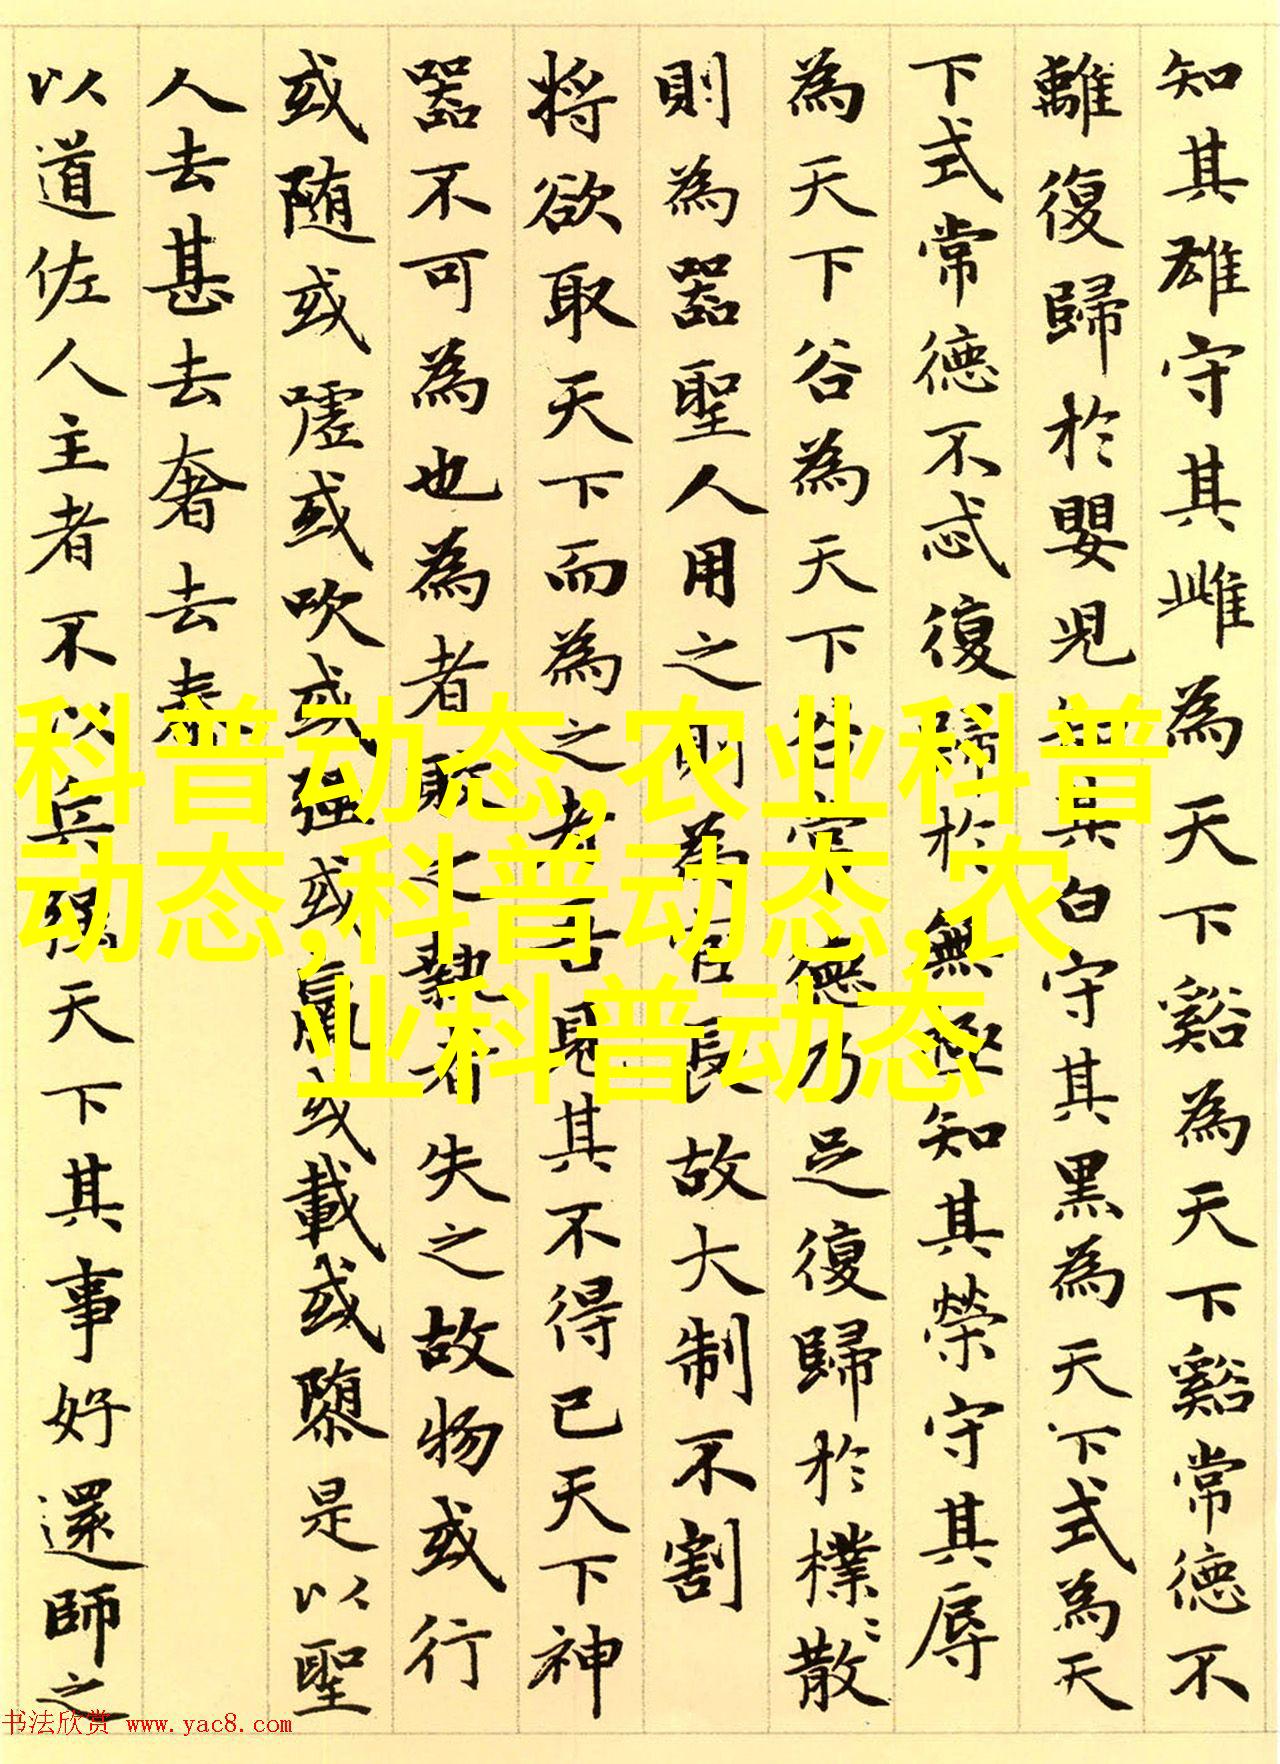 知其雄守其雌為天下谿為天下谿常德不
離復歸於嬰兒知其白守其黑為天下式為天
下式常德不忒復歸於無極知其榮守其辱
為天下谷為天下谷常德乃足復歸於樸〻散
則為器聖人用之則為官長故大制不割
将欲取天下而為之者吾見其不得已天下神
器不可為也為者敗之執者失之故物或行
或随或嘘或吹或强或羸或載或隳是以聖
人去甚去奢去泰
以道佐人主者不以兵强天下其事好還師之
科普动态,农业科普
动态,科普动态,农
业科普动态
书法欣赏 www.yac8.com